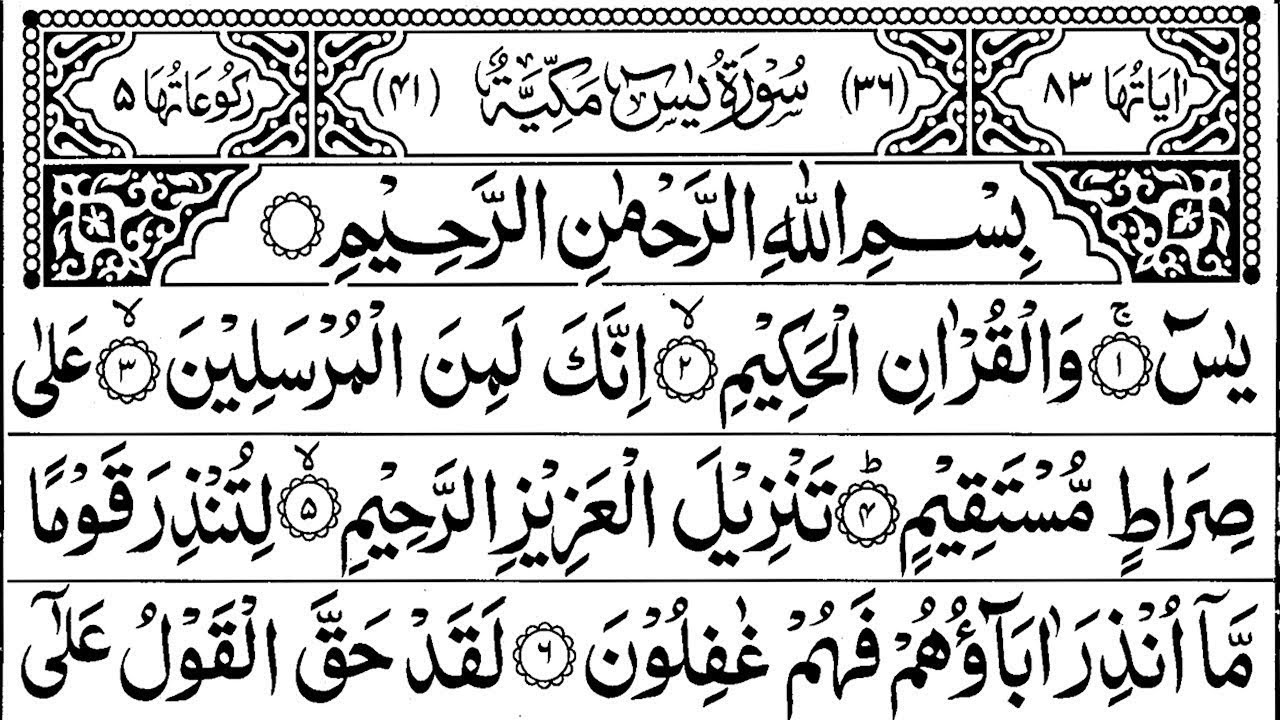 اٰيَاتُهَا ٨٣ (٣٦) سُوْرَةُ يٰسٓ مَكِّيَّةٌ (٤١) رُكُوْعَاتُهَا ٥
بِسْمِ اللّٰهِ الرَّحْمٰنِ الرَّحِيْمِ
يٰسٓ ۚ﴿١﴾ وَالْقُرْاٰنِ الْحَكِيْمِ ۙ﴿٢﴾ اِنَّكَ لَمِنَ الْمُرْسَلِيْنَ ۙ﴿٣﴾ عَلٰى
صِرَاطٍ مُّسْتَقِيْمٍ ؕ﴿۴﴾ تَنْزِيْلَ الْعَزِيْزِ الرَّحِيْمِ ۙ﴿۵﴾ لِتُنْذِرَ قَوْمًا
مَّآ اُنْذِرَ اٰبَآؤُهُمْ فَهُمْ غٰفِلُوْنَ ﴿٦﴾ لَقَدْ حَقَّ الْقَوْلُ عَلٰٓى